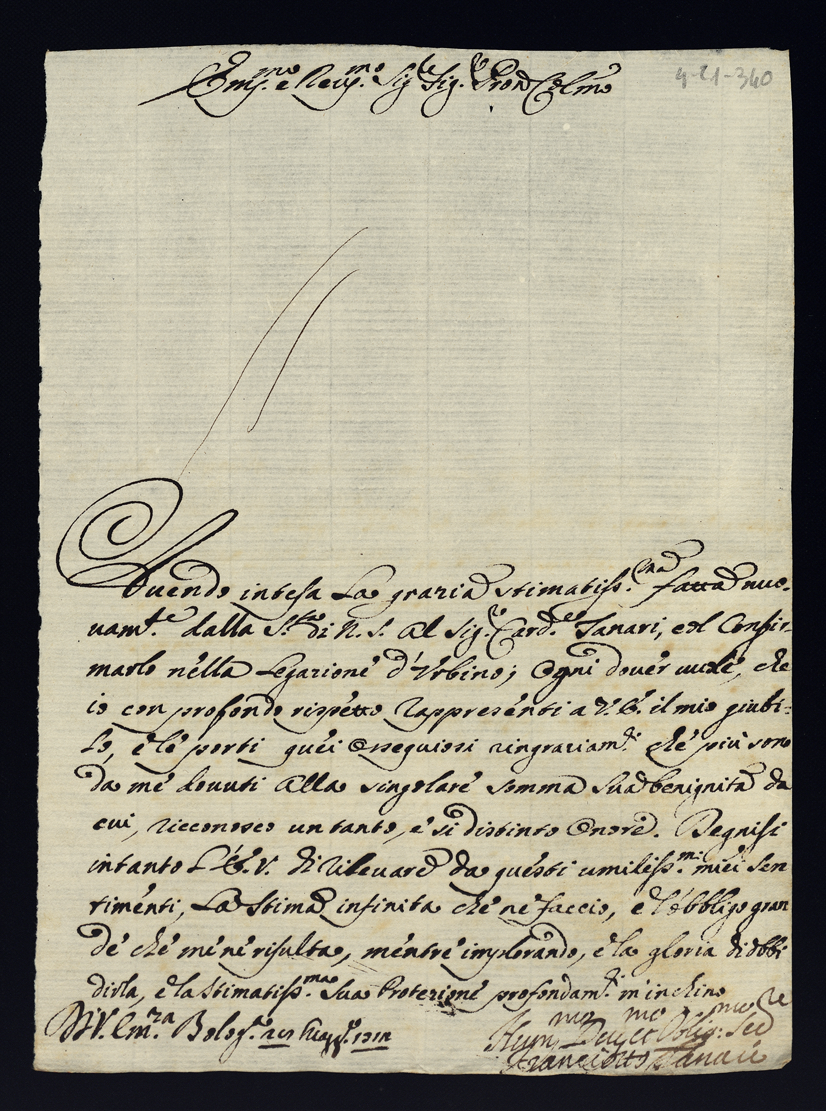 Em.mo e Reu.mo Sig.re Sig.re Pron Colmo
4-21-340
Auendo intesa La grazia stimatiss.ma fatta nuo-
uam.te dalla S.tà di N. S. al Sig.r Card.le Tanari, col Confir-
marlo nella Legazione d'Urbino; Ogni douer uuole, che
io con profondo rispetto rappresenti a V. E. il mio giubi-
lo, e le porti quei ossequiosi ringraziam.ti che più sono
da me douuti alla singolare somma sua benignità da
cui, riconosco un tanto, e si distinto Onore. Degnisi
intanto L'E. V. di rileuare da questi umiliss.mi miei sen
timenti, La Stima infinita che ne faccio, e l'obbligo gran
de che me ne risulta, mentre implorando, e la gloria di obbi
dirla, e la stimatiss.ma sua Protezione profondam.te m'inchino
Di V. Em.za Bolog.a
Hum.mo Deu.mo et Oblig.mo Ser.re
Francesco Tanari